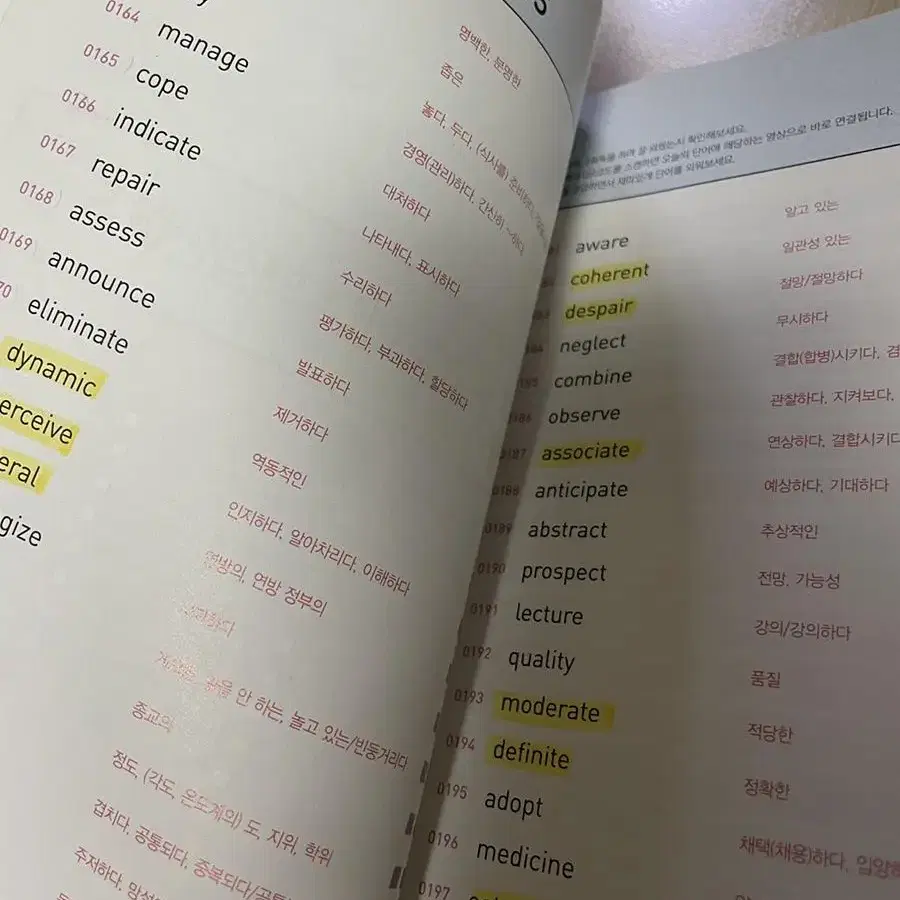 5
0164 manage 명백한, 분명한
0165 cope 좁은
0166 indicate 놓다, 두다, (식사를)
0167 repair 경영(관리)하다, 간신히 ~하다
0168 assess 대처하다
0169 announce 나타내다, 표시하다
70 eliminate 수리하다
dynamic 평가하다, 부과하다, 할당하다
erceive 발표하다
eral 제거하다
gize 역동적인
인지하다, 알아차리다, 이해하다
연방의, 연방 정부의
안 하는, 놀고 있는/빈둥거리다
종교의
정도, (각도, 온도계의) 도, 지위, 학위
겹치다, 공통되다, 중복되다/
주저하다,
확인해보세요.
스캔하면 오늘의 단어에 해당하는 영상으로 바로 연결됩니다.
재미있게 단어를 외워보세요.
aware 알고 있는
coherent 일관성 있는
despair 절망/절망하다
neglect 무시하다
combine 결합(합병)시키다, 겸
0186 observe 관찰하다, 지켜보다,
0187 associate 연상하다, 결합시키다
0188 anticipate 예상하다, 기대하다
0189 abstract 추상적인
0190 prospect 전망, 가능성
0191 lecture 강의/강의하다
0192 quality 품질
0193 moderate 적당한
0194 definite 정확한
0195 adopt 채택(채용)하다, 입양하
0196 medicine
0197